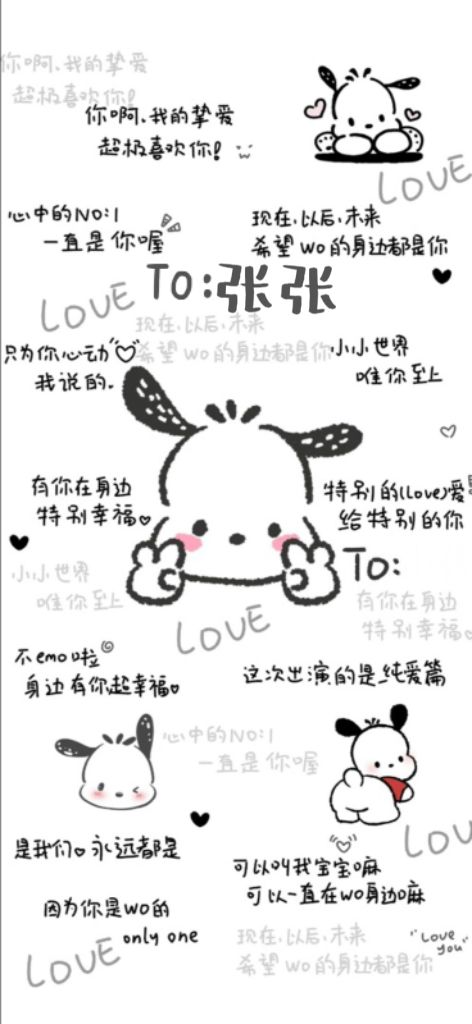 你啊、我的挚爱
超极喜欢你!
你啊、我的挚爱
超极喜欢你!
LOVE
心中的NO:1
一直是你喔
现在、以后、未来
希望wo的身边都是你
To:张张
LOVE
现在、以后、未来
希望wo的身边都是你
只为你心动
我说的.
小小世界
唯你至上
有你在身边
特别幸福
特别的(Love)爱
给特别的你
To:
小小世界
唯你至上
有你在身边
特别幸福
LOVE
不emo啦
身边有你超幸福
这次出演的是纯爱篇
心中的NO:1
一直是你喔
LOVE
是我们 永远都是
可以叫我宝宝嘛
可以一直在wo身边嘛
因为你是wo的
only one
现在、以后、未来
希望wo的身边都是你
"Love
you"
LOVE